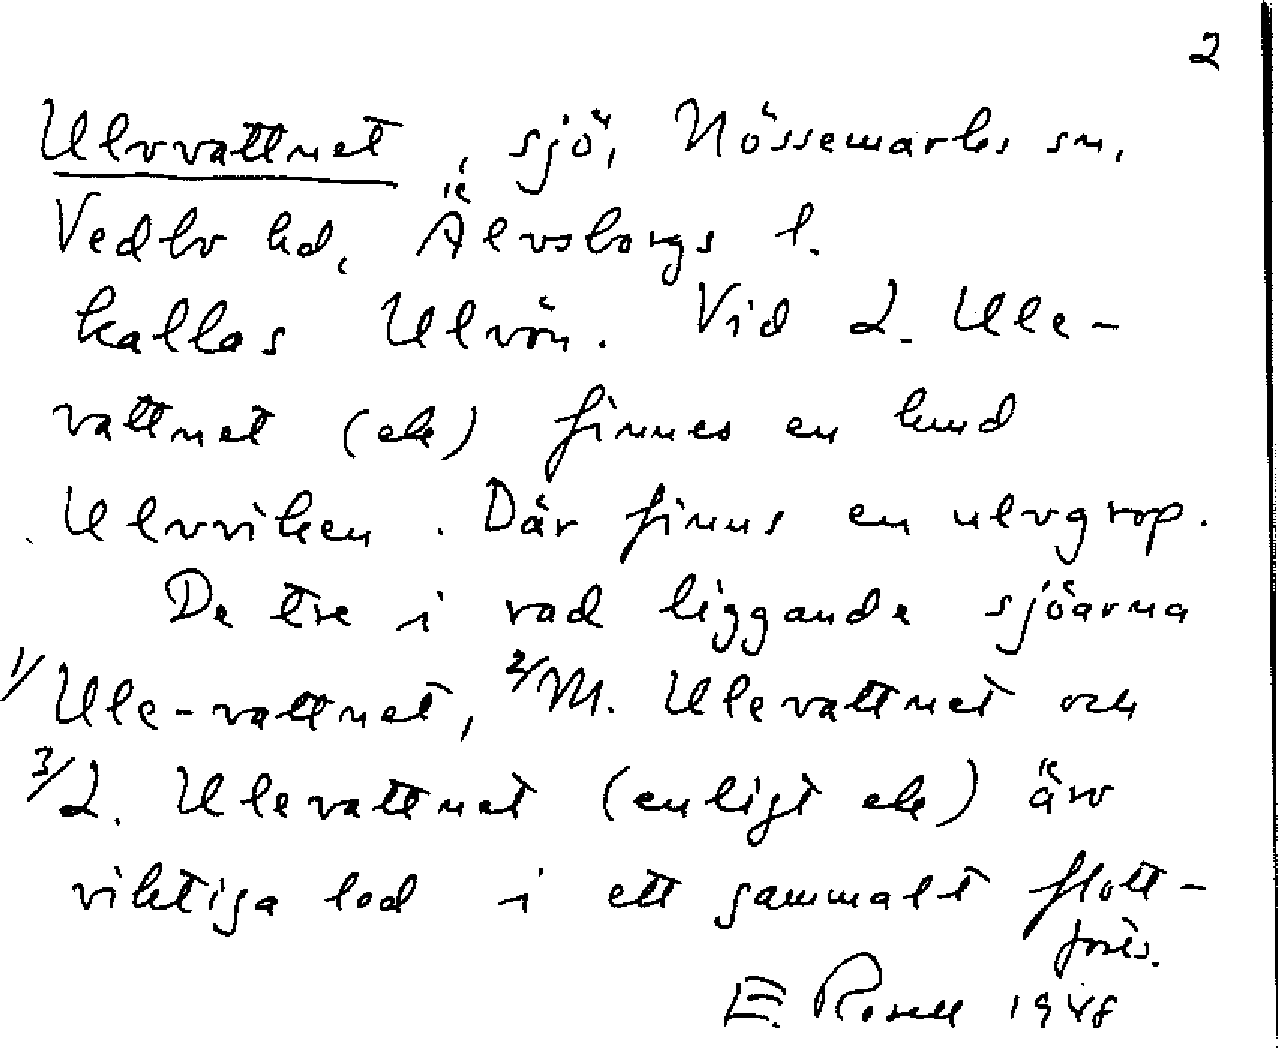 2
Ulvvattnet, sjö, Nössemarks sn,
Vedbo hd, Älvsborgs l.
kallas Ulvön. Vid L. Ule-
vattnet (ek) finnes en lund
Ulvviken. Där finns en ulvgrop.
De tre i rad liggande sjöarna
1/ Ule-vattnet, 2/ M. Ulevattnet och
3/ L. Ulevattnet (enligt ek) äro
viktiga led i ett gammalt flott-
E. Rosell 1948